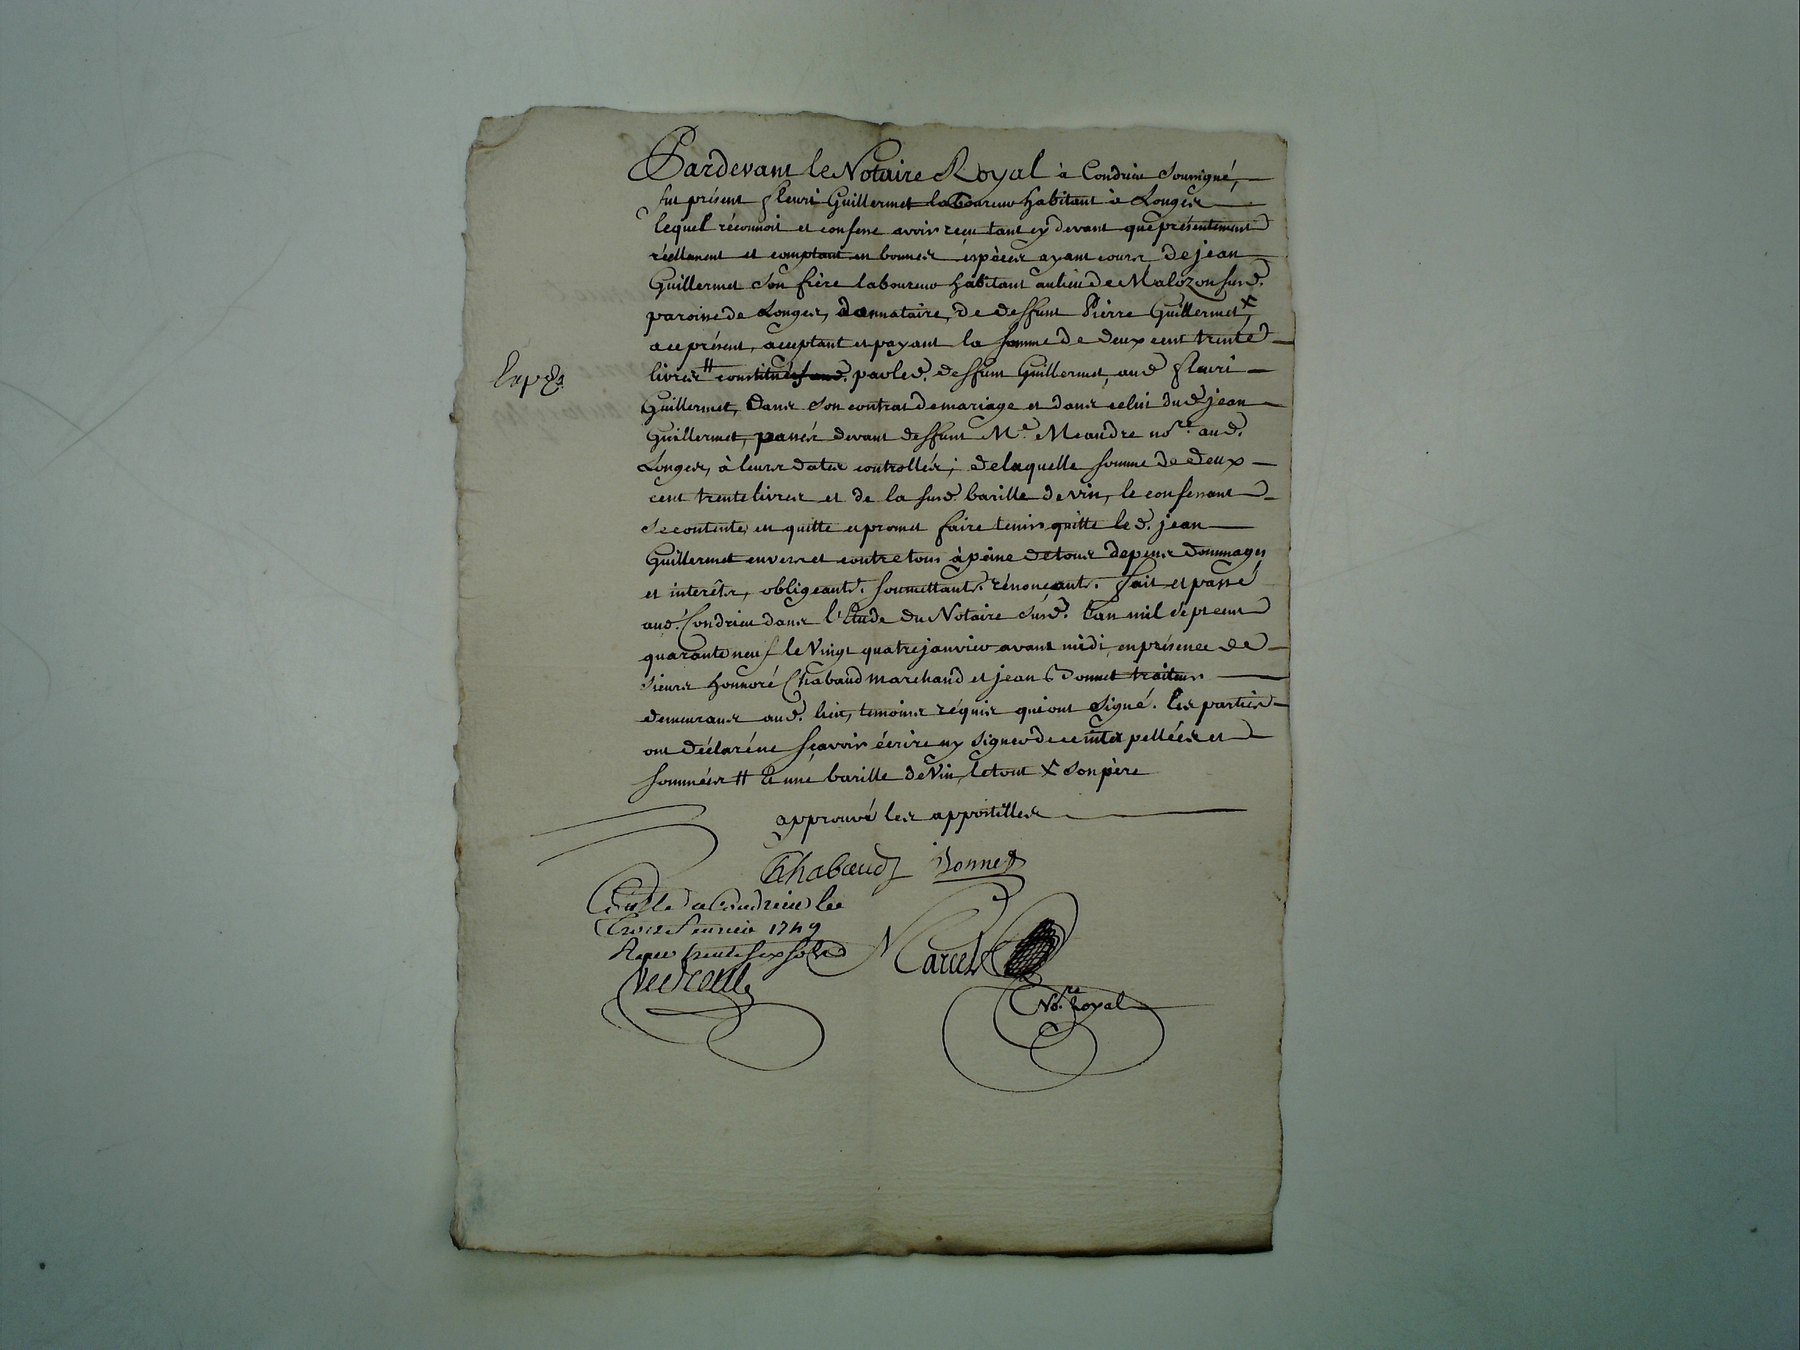 Pardevant le Notaire Royal à Condrieu soussigné,
fut présent fleuri Guillermet laboureur habitant à Longes
lequel réconnoit et confesse avoir reçu tant cy devant que présentement
réellement et comptant en bonnes espèces ayant cours de jean
Guillermet son frère laboureur habitant au lieu de Malozon susd.
paroisse de Longes, donnataire de deffunt Pierre Guillermet x,
ace présent, aceptant et payant la somme de deux cent trente
livres # constituées par led. deffunt Guillermet, aud. fleuri
Guillermet, dans son contrat de mariage et dans celui dud. jean
Guillermet, passés devant deffunt Me. Meandre nore. aud.
Longes, à leurs dates controllés; de laquelle somme de deux
cent trente livres et de la susd. barille de vin, le confessant
se contente, en quitte et promet faire tenir quitte led. jean
Guillermet envers et contre tous à peine de tous depens dommages
et interêts, obligeants. soumettants. rénonçants. fait et passé
aud. Condrieu dans l'Etude du Notaire susd. l'an mil sept cent
quarante neuf le vingt quatre janvier avant midi, en présence de
sieurs honnoré Chabaud marchand et jean Bonnet traiteur
demeurans aud. lieu, temoins réquis qui ont signé. les parties
ont déclaré ne sçavoir écrire ny signer de ce interpellées et
sommées # & une barille de vin, le tout x son père
approuvé les appostilles
Chabaud Bonnet
Conllé a Condrieu le
trois fevrier 1749
Reçu trente six sols
Carcel
Nore. Royal